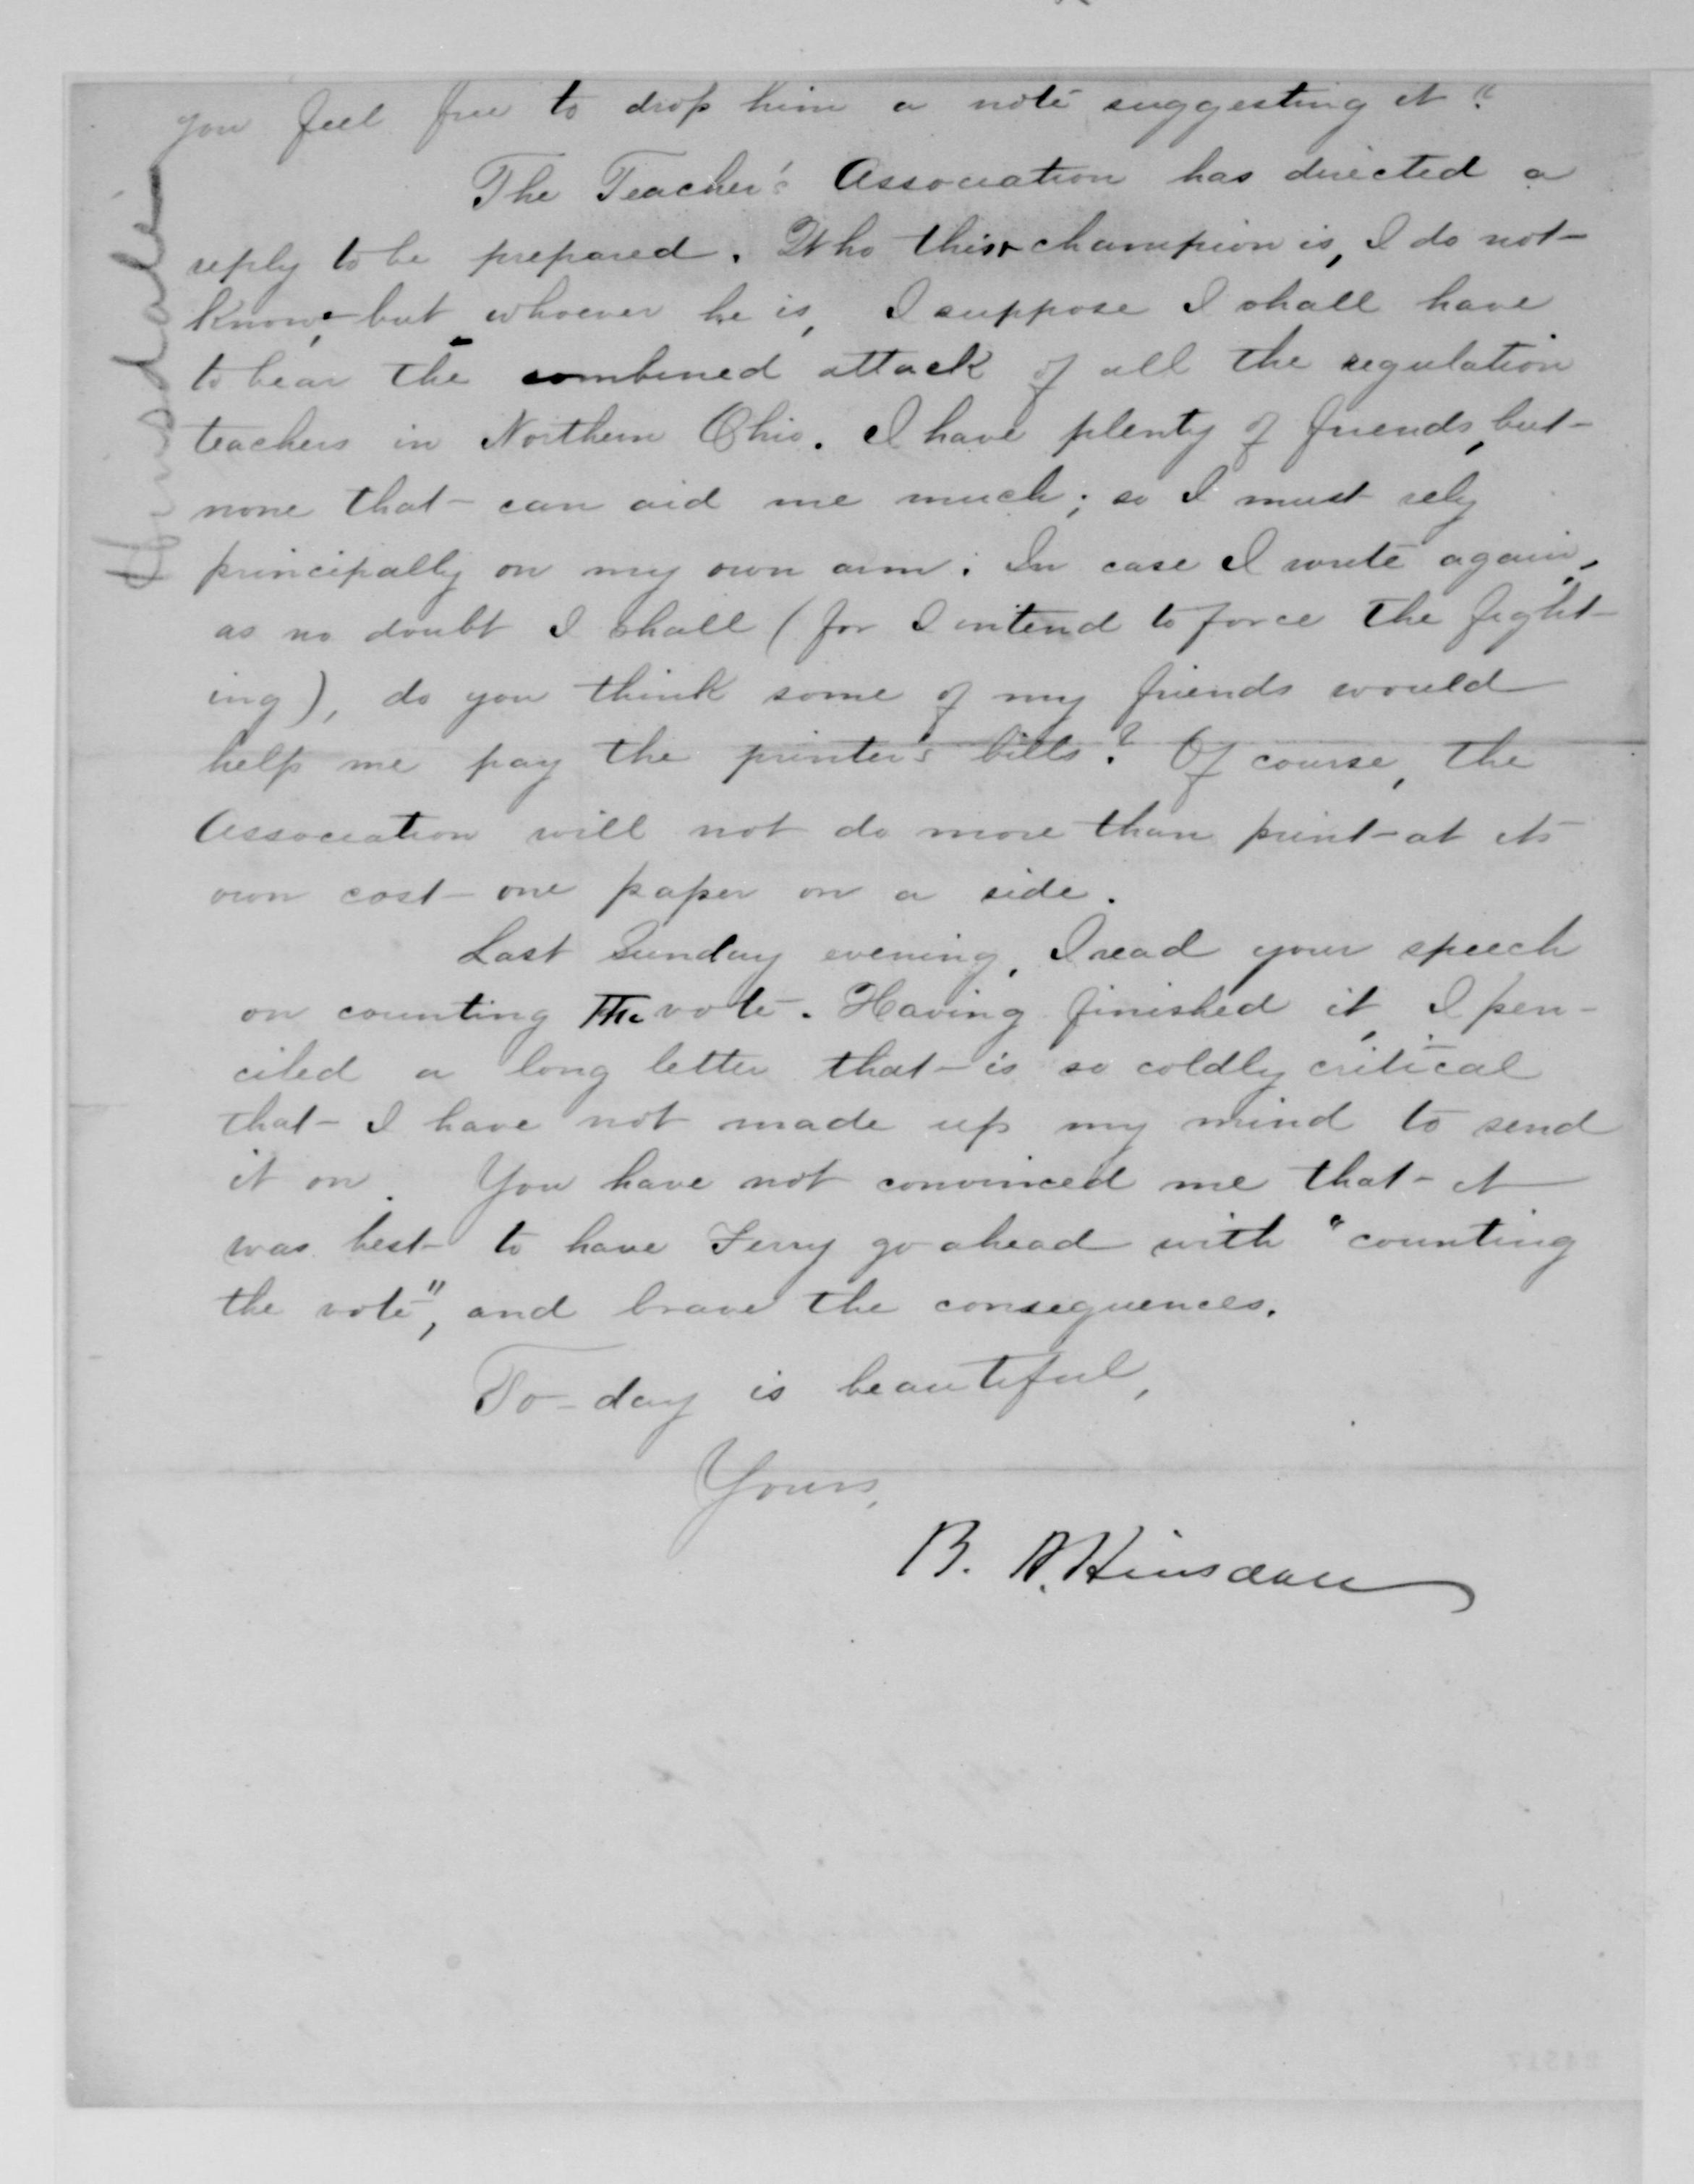 you feel free to drop him a note suggesting it?
The Teacher's Association has directed a
reply to be prepared. Who their champion is, I do not
know, but, whoever he is, I suppose I shall have
to bear the combined attack of all the regulation
teachers in Northern Ohio. I have plenty of friends, but
none that can aid me much; so I must rely
principally on my own arm. In case I write again,
as no doubt I shall (for I intend to force the fight-
ing), do you think some of my friends would
help me pay the printer's bills? Of course, the
Association will not do more than print at its
own cost one paper on a side.
Last Sunday evening, I read your speech
on counting the vote. Having finished it, I pen-
ciled a long letter that is so coldly critical
that I have not made up my mind to send
it on. You have not convinced me that it
was best to have Ferry go ahead with "counting
the vote", and brave the consequences.
To-day is beautiful,
Yours,
B. A. Hinsdale
Hinsdale